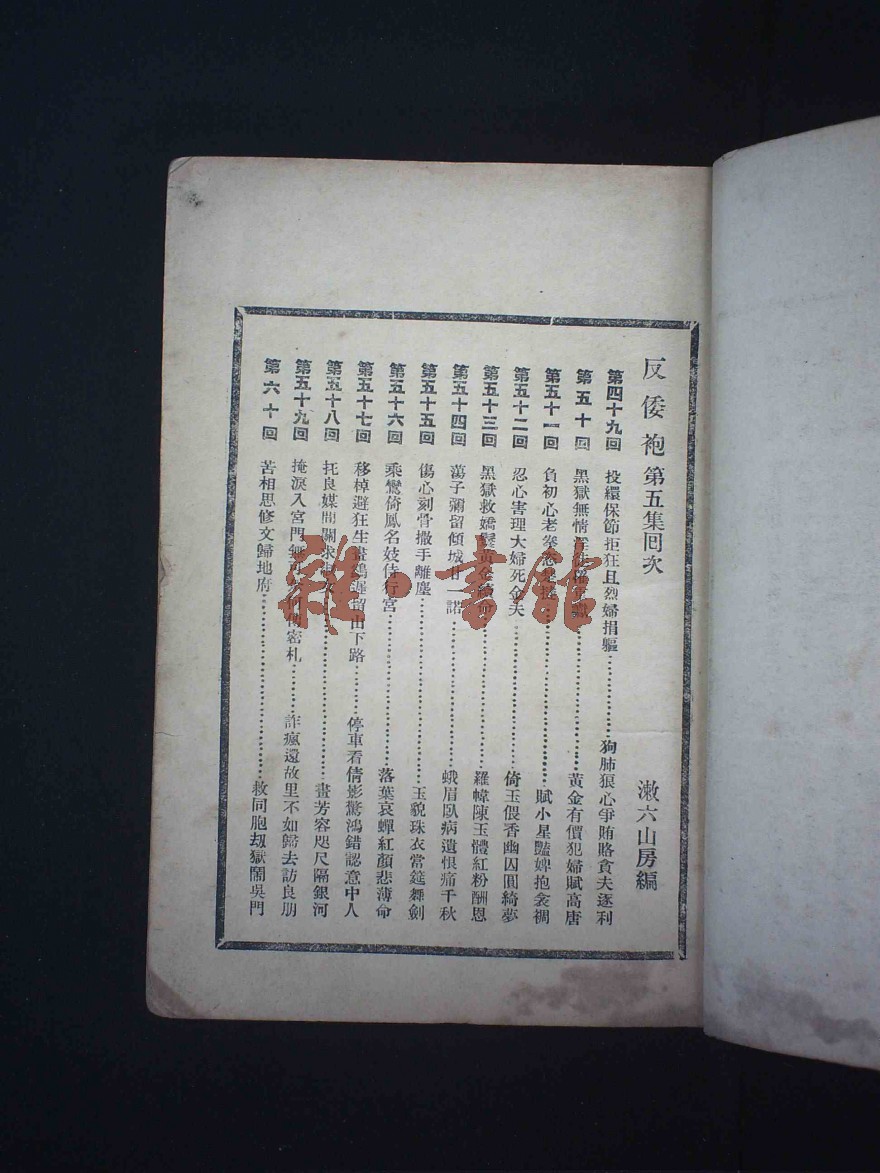 反倭袍第五集囘次 漱六山房編
第四十九回 投繯保節拒狂且烈婦捐軀…………狗肺狠心爭賄賂貪夫逐利
第五十回 黑獄無情 黃金有價犯婦賦高唐
第五十一回 負初心老拳 …………賦小星豔婢抱衾裯
第五十二回 忍心害理大婦死金夫…………倚玉偎香幽囚圓綺夢
第五十三回 黑獄救嬌 黃金 …………羅幃陳玉體紅粉酬恩
第五十四回 蕩子彌留傾城甘一諾…………蛾眉臥病遺恨痛千秋
第五十五回 傷心刻骨撒手離塵…………玉貌珠衣當筵舞劍
第五十六回 乘鸞倚鳳名妓侍行宮…………落葉哀蟬紅顏悲薄命
第五十七回 移棹避狂生畫鷁遲留山下路…………停車看倩影驚鴻錯認意中人
第五十八回 托良媒間關求淑女…………畫芳容咫尺隔銀河
第五十九回 掩淚入宮門無可奈何傳密札…………詐瘋還故里不如歸去訪良朋
第六十回 苦相思修文歸地府…………救同胞刼獄鬧吳門
雜·書館